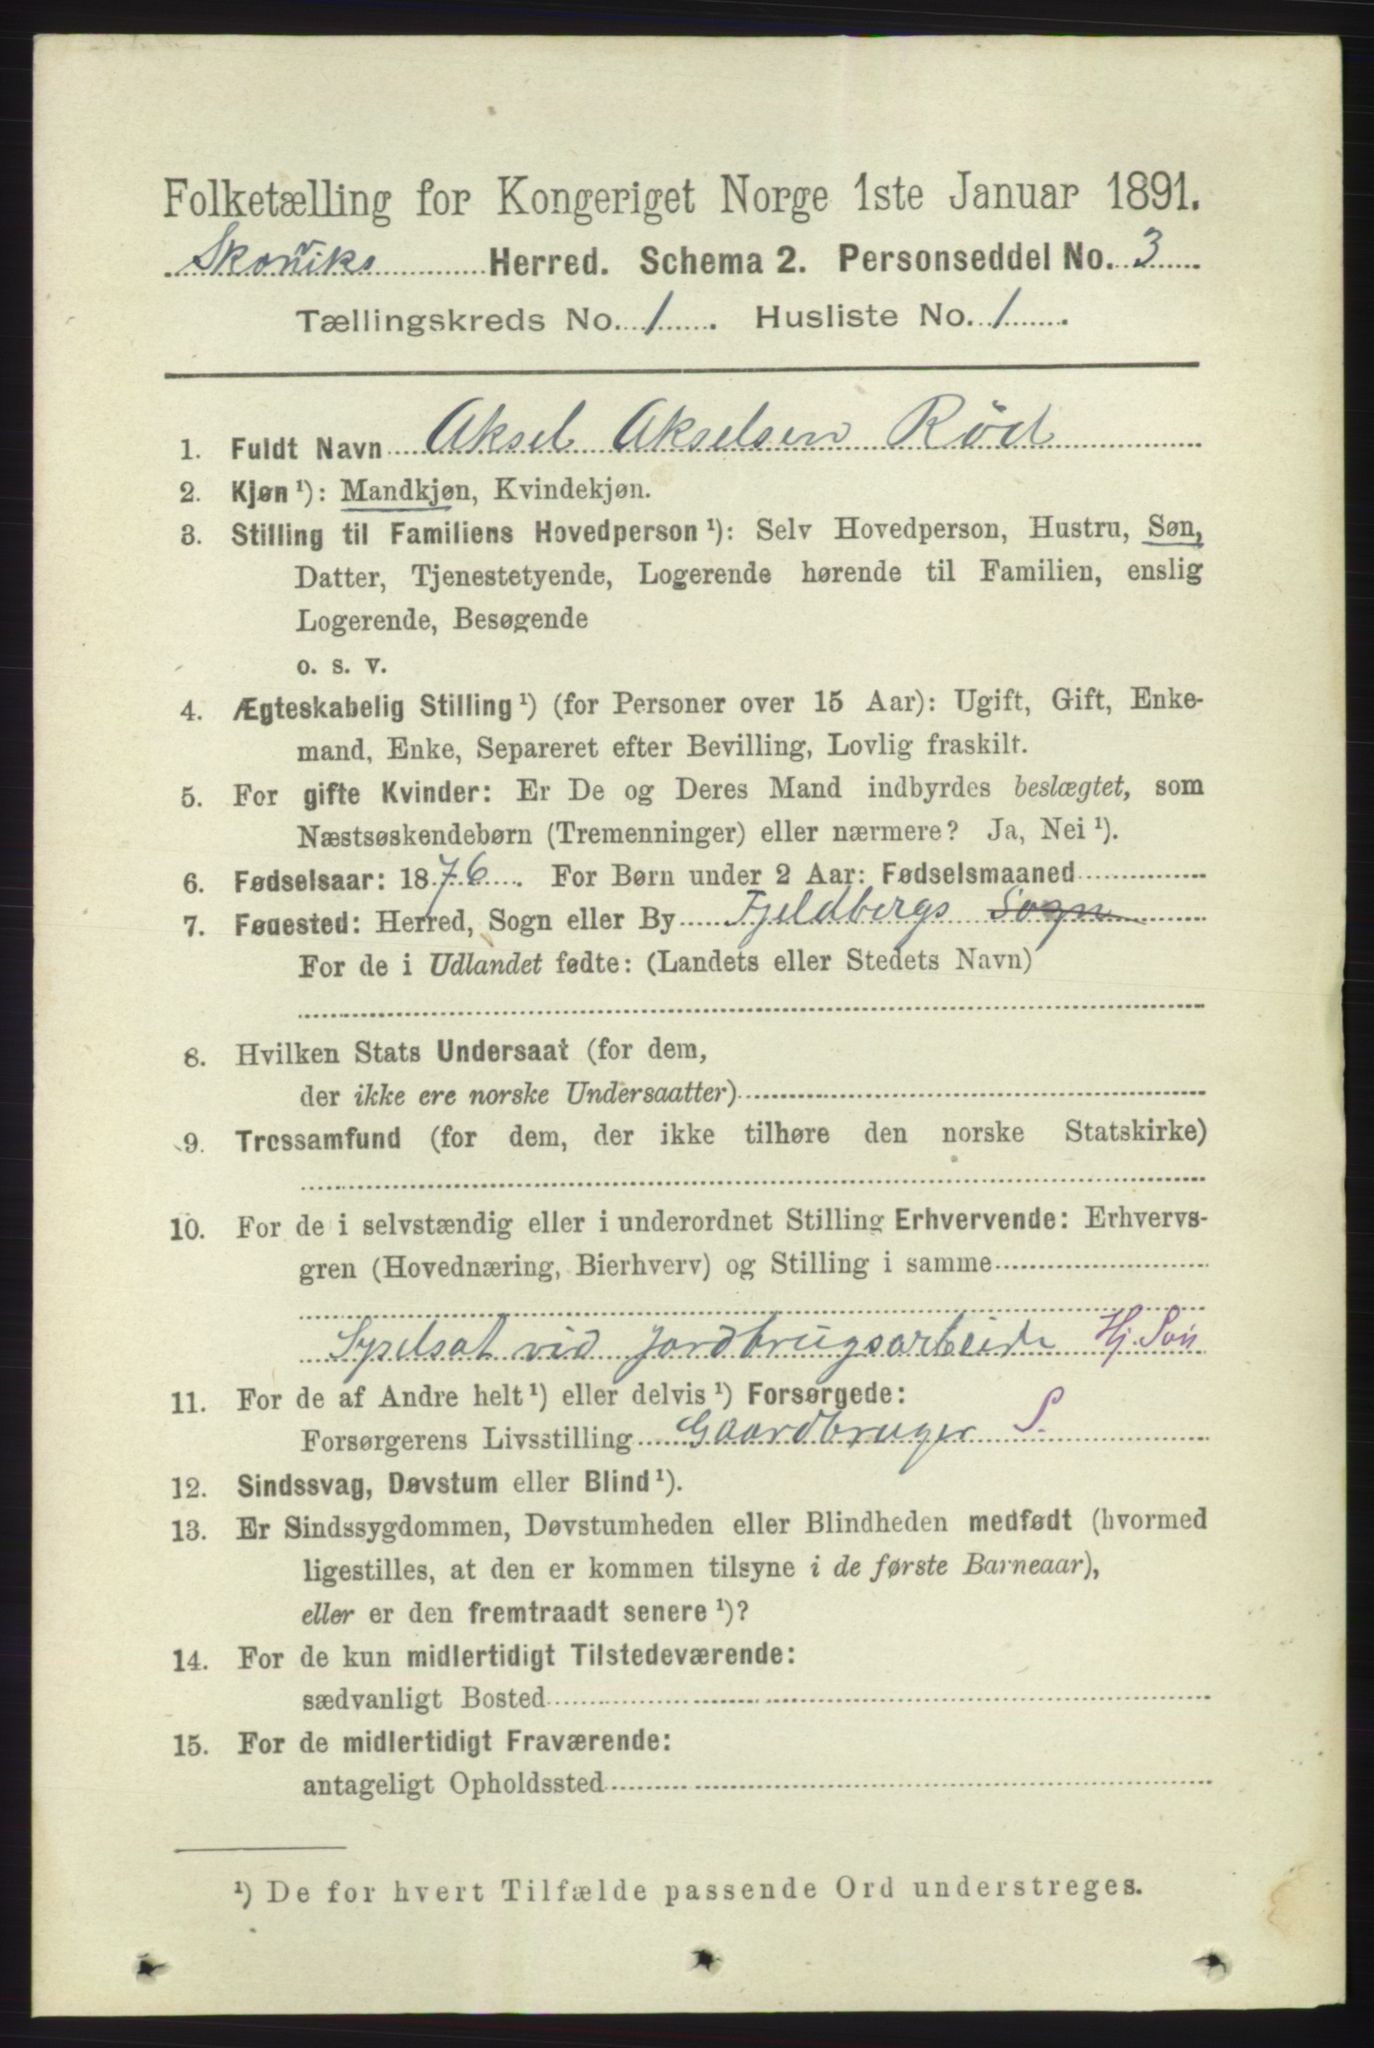 Folketælling for Kongeriget Norge 1ste Januar 1891.
Skoniks Herred. Schema 2. Personseddel No. 3
Tællingskreds No. 1. Husliste No. 1.
1. Fuldt Navn Aksel Akselsen Rød
2. Kjøn¹): Mandkjøn, Kvindekjøn.
3. Stilling til Familiens Hovedperson¹): Selv Hovedperson, Hustru, Søn,
Datter, Tjenestetyende, Logerende hørende til Familien, enslig
Logerende, Besøgende
o. s. v.
4. Ægteskabelig Stilling¹) (for Personer over 15 Aar): Ugift, Gift, Enke-
mand, Enke, Separeret efter Bevilling, Lovlig fraskilt.
5. For gifte Kvinder: Er De og Deres Mand indbyrdes beslægtet, som
Næstsøskendebørn (Tremenninger) eller nærmere? Ja, Nei¹).
6. Fødselsaar: 1876. For Børn under 2 Aar: Fødselsmaaned
7. Fødested: Herred, Sogn eller By Fjeldbergs Sogn
For de i Udlandet fødte: (Landets eller Stedets Navn)
8. Hvilken Stats Undersaat (for dem,
der ikke ere norske Undersaatter)
9. Trossamfund (for dem, der ikke tilhøre den norske Statskirke)
10. For de i selvstændig eller i underordnet Stilling Erhvervende: Erhvervs-
gren (Hovednæring, Bierhverv) og Stilling i samme
Sysselsat vid jordbrugsarbeide Hj. Søn
11. For de af Andre helt¹) eller delvis¹) Forsørgede:
Forsørgerens Livsstilling Gaardbruger S.
12. Sindssvag, Døvstum eller Blind¹).
13. Er Sindssygdommen, Døvstumheden eller Blindheden medfødt (hvormed
ligestilles, at den er kommen tilsyne i de første Barneaar),
eller er den fremtraadt senere¹)?
14. For de kun midlertidigt Tilstedeværende:
sædvanligt Bosted
15. For de midlertidigt Fraværende:
antageligt Opholdssted
¹) De for hvert Tilfælde passende Ord understreges.